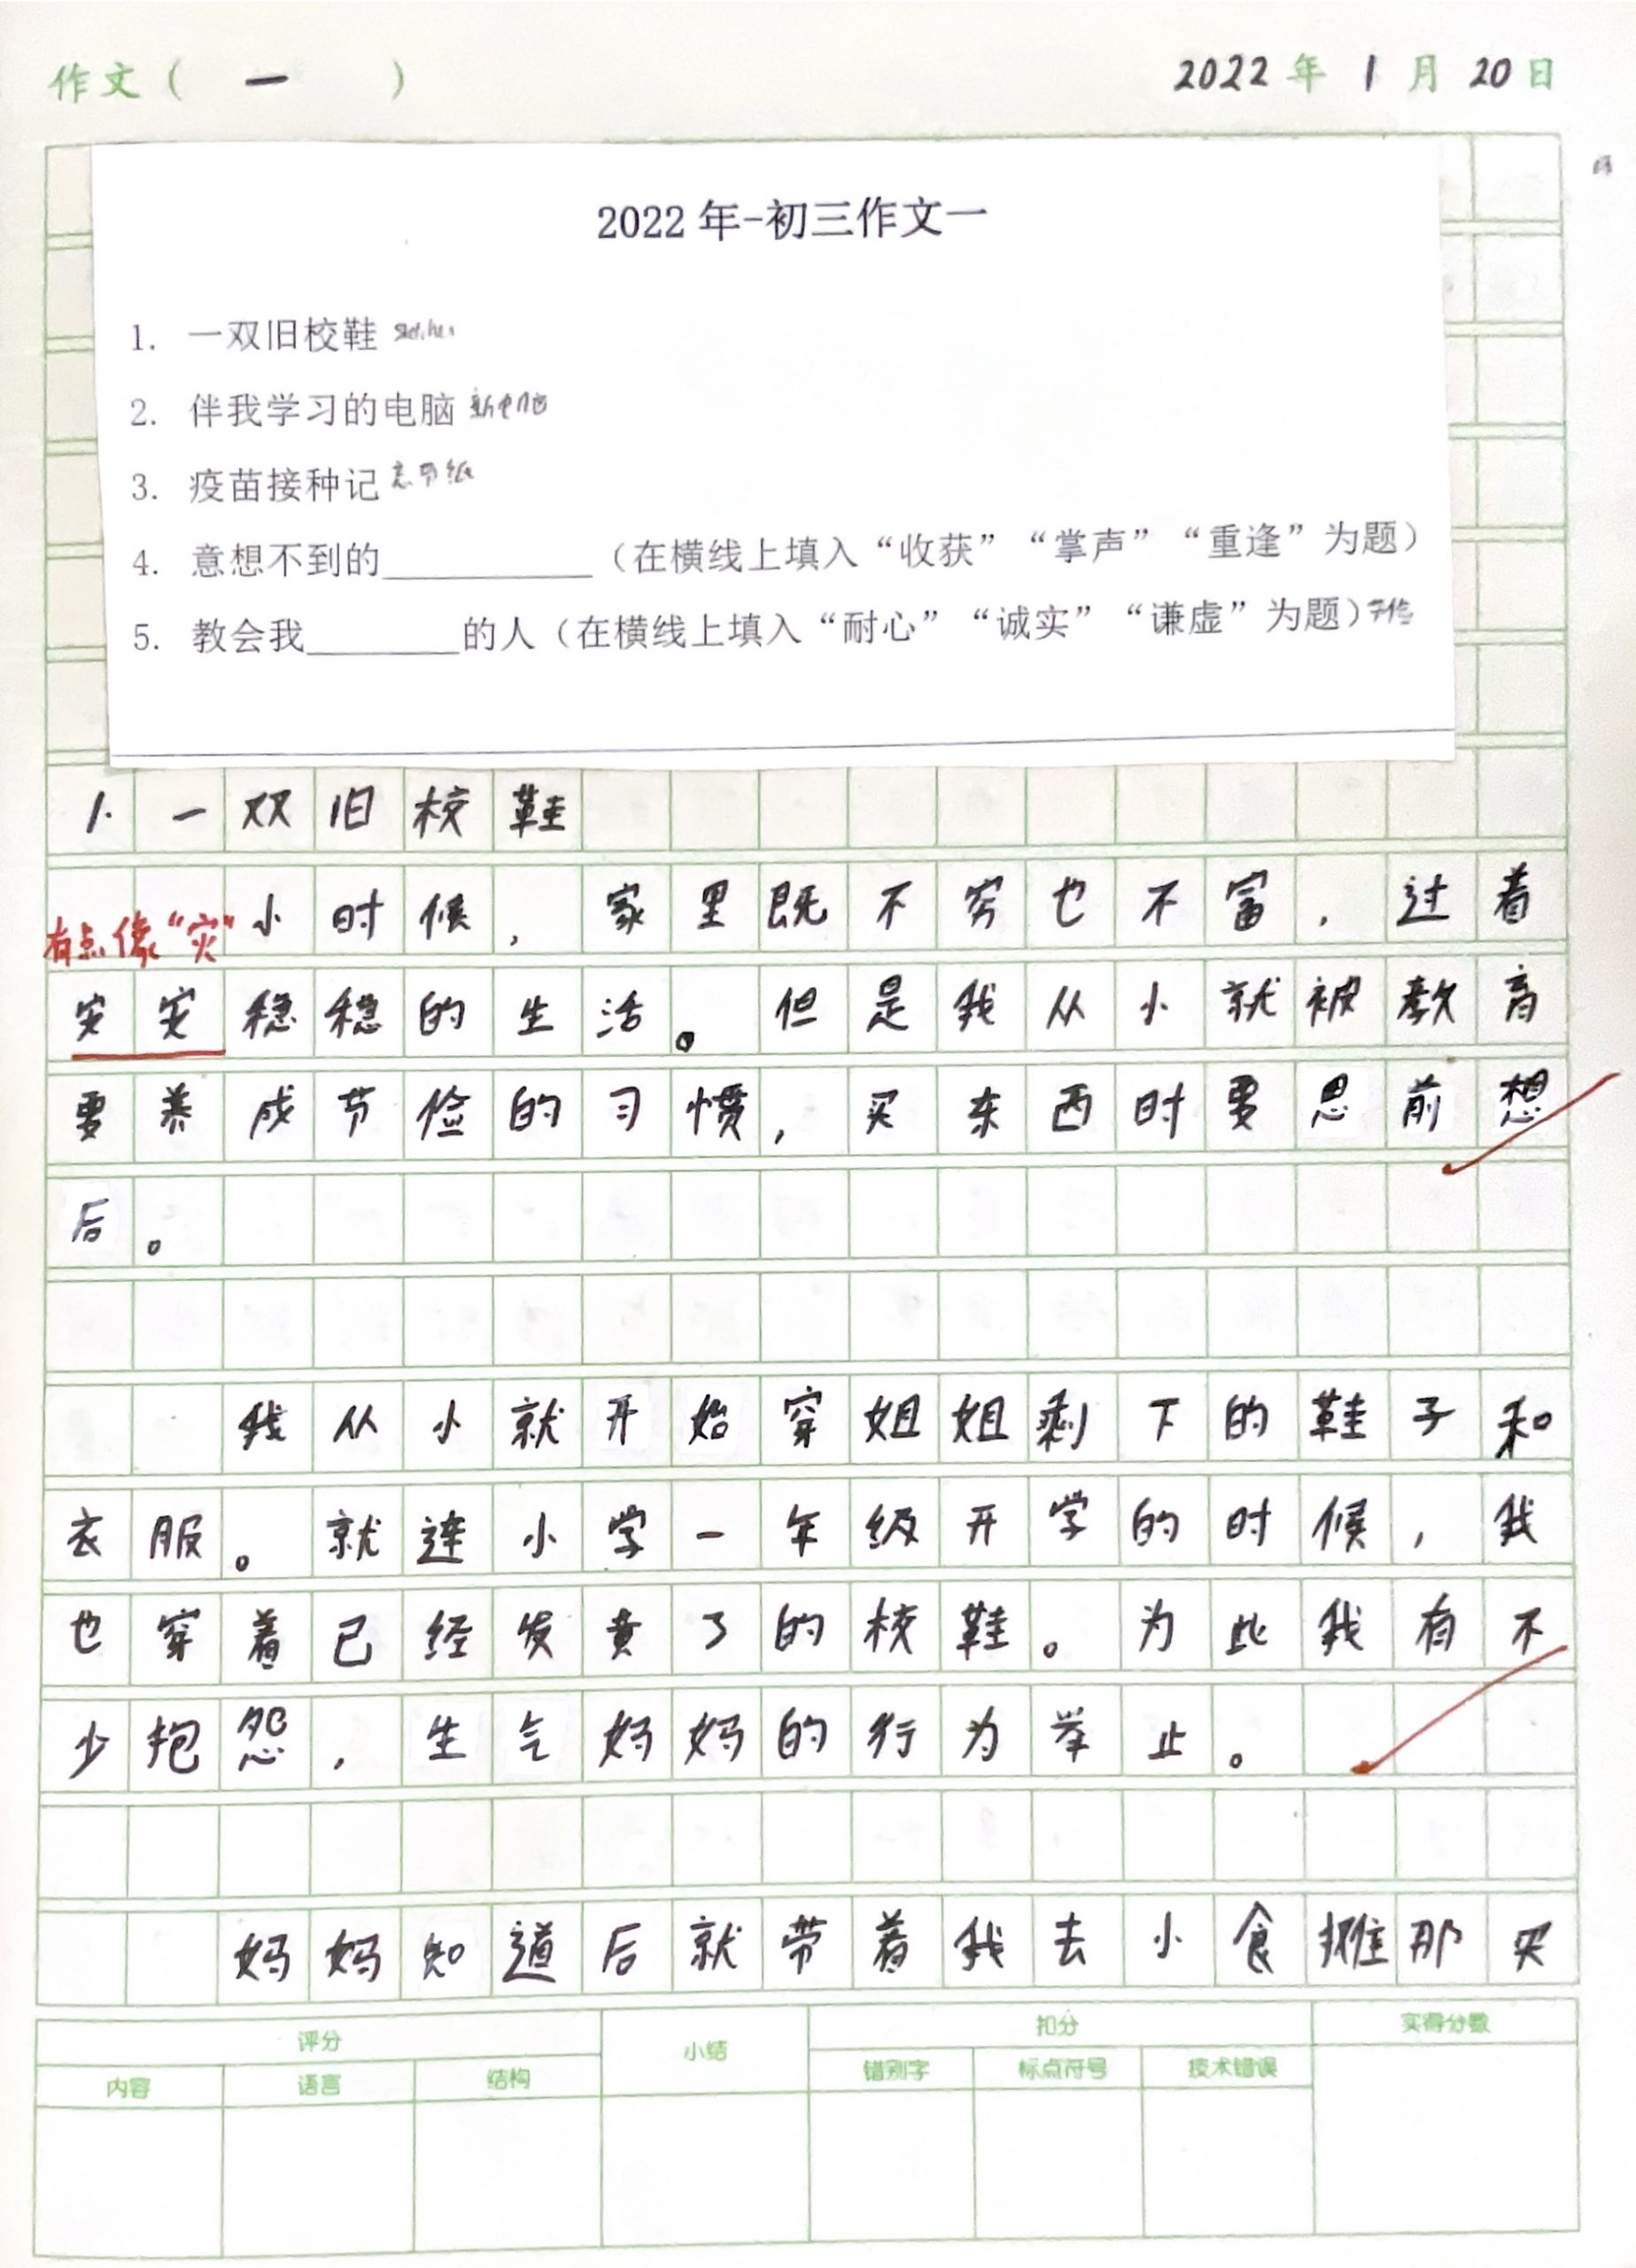 作文（ 一 ） 2022 年 1 月 20 日
2022 年-初三作文一
1. 一双旧校鞋
2. 伴我学习的电脑 新电脑
3. 疫苗接种记
4. 意想不到的__________（在横线上填入“收获”“掌声”“重逢”为题）
5. 教会我________的人（在横线上填入“耐心”“诚实”“谦虚”为题）节俭
1. 一双旧校鞋
有点像“灾”
小时候，家里既不穷也不富，过着
安安稳稳的生活。但是我从小就被教育
要养成节俭的习惯，买东西时要思前想
后。
我从小就开始穿姐姐剩下的鞋子和
衣服。就连小学一年级开学的时候，我
也穿着已经发黄了的校鞋。为此我有不
少抱怨，生气妈妈的行为举止。
妈妈知道后就带着我去小食摊那买
评分 小结 扣分 实得分数
内容 语言 结构 错别字 标点符号 技术错误